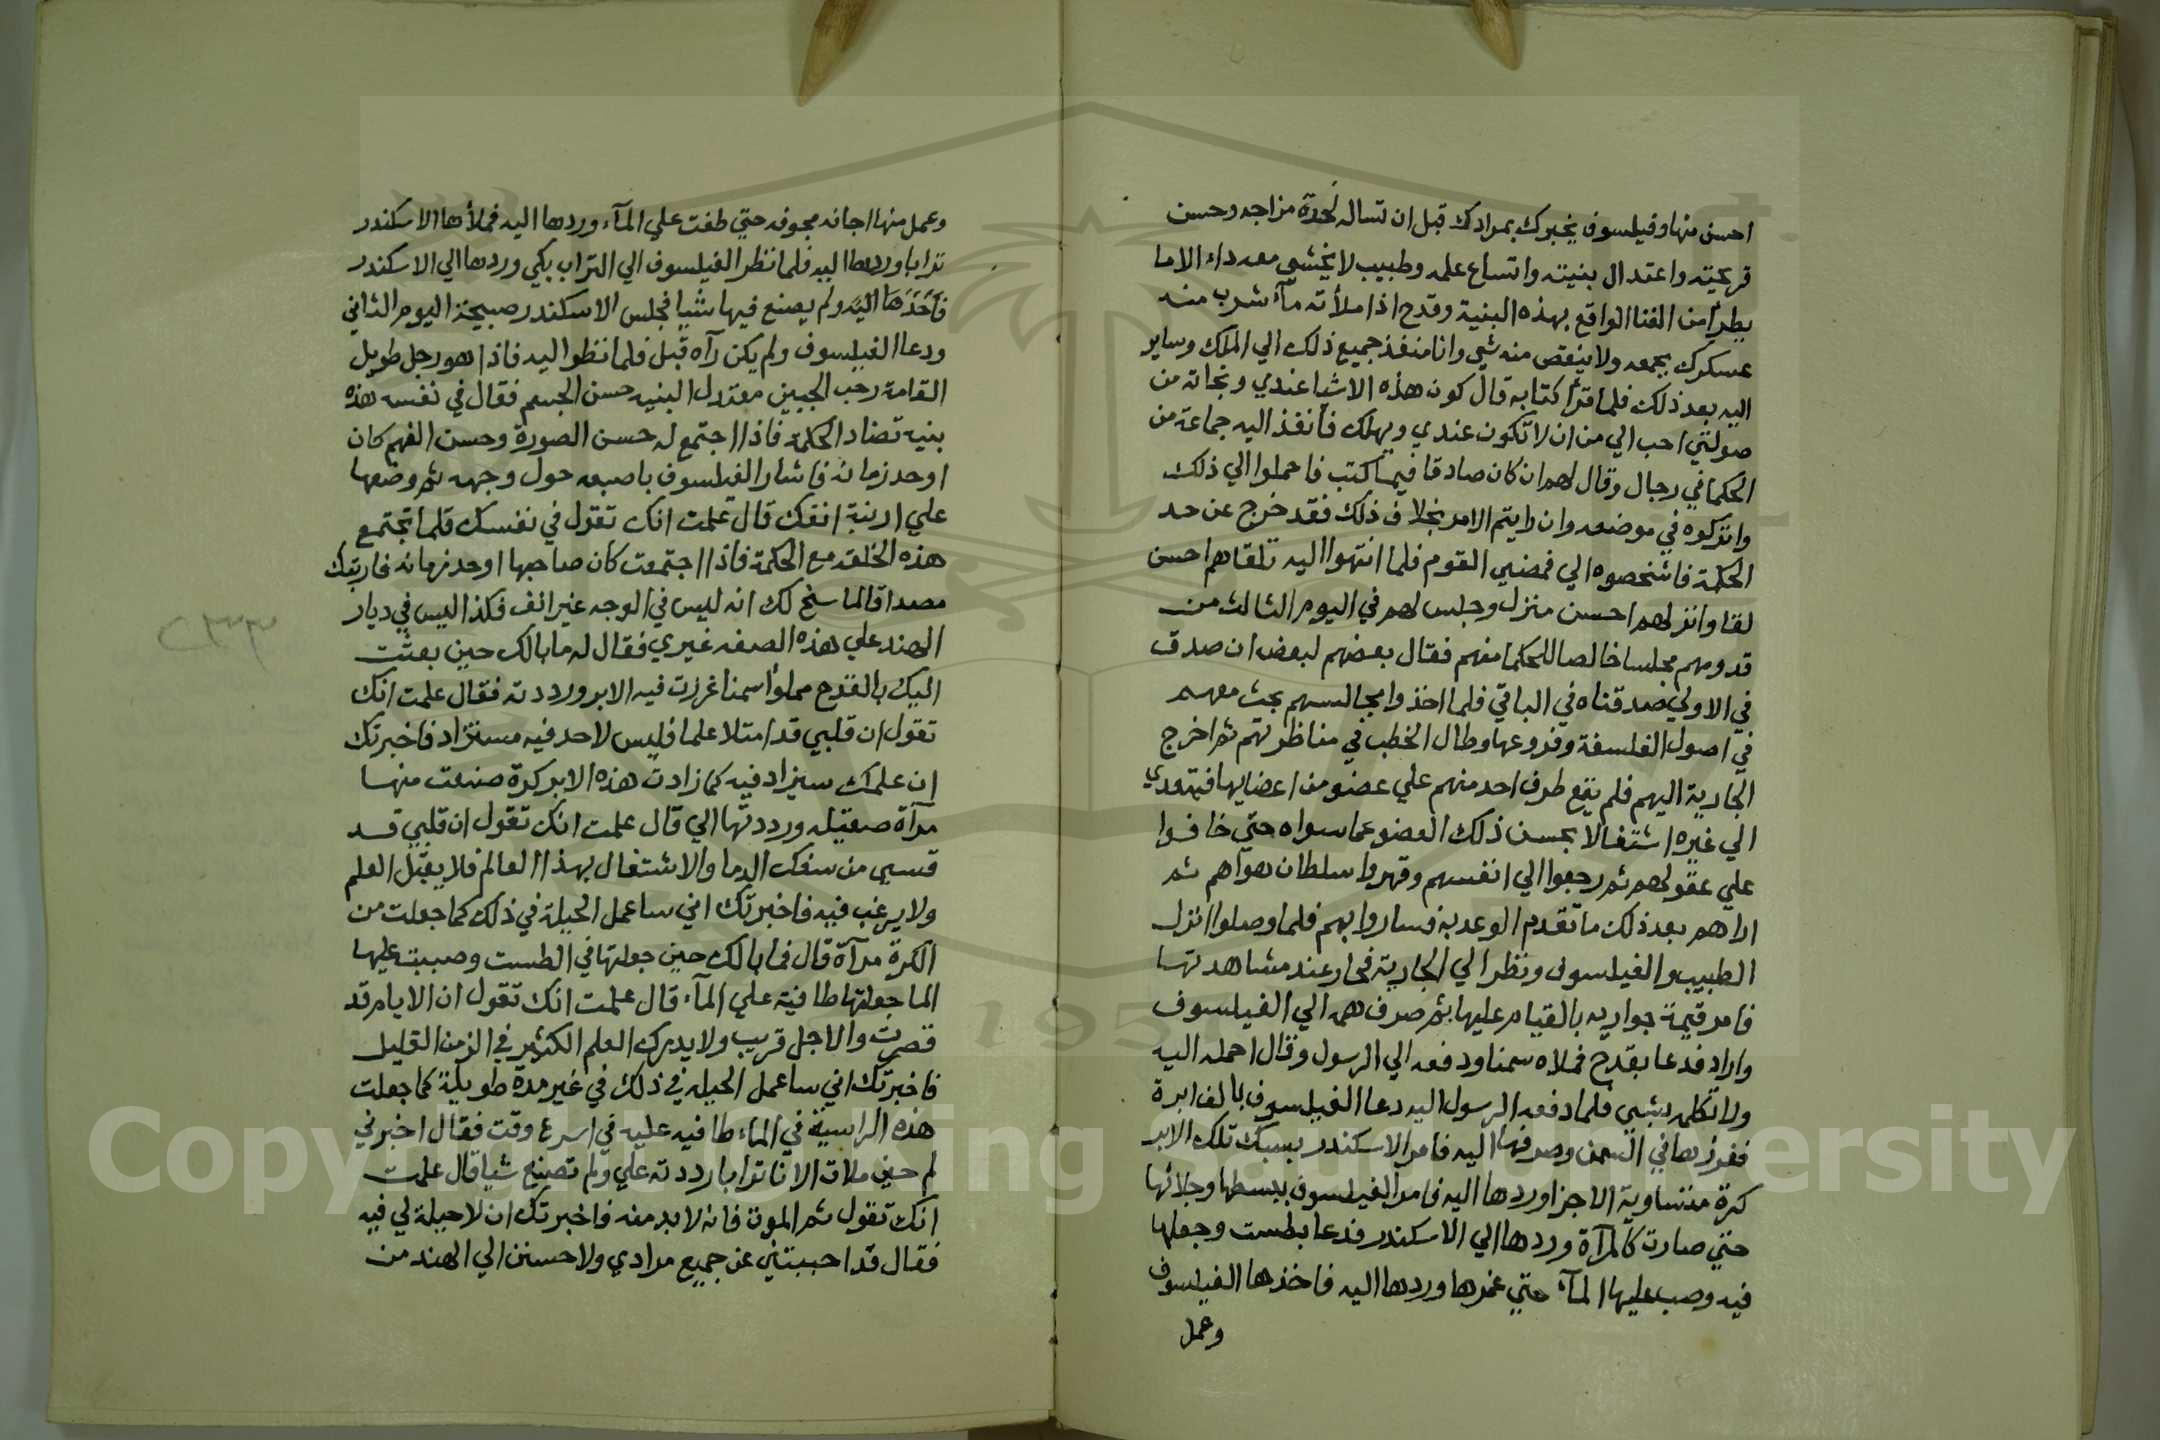 احسن منها وفيلسوف يخبرك بمرادك قبل ان تساله لحدة مزاجه وحسن
قريحته واعتدال بنيته واتساع علمه وطبيب لا يخشي معه داء الا ما
يطرأ من الفنا الواقع بهذه البنية وقدح اذا ملأته مآء شرب منه
عسكرك بجمعه ولا ينقص منه شي وانا منفذ جميع ذلك الي الملك وساير
اليه بعد ذلك فلما قرأ كتابه قال كون هذه الاشيا عندي ونجاته من
صولتي احب الي من ان لا تكون عندي ويهلك فأنفذ اليه جماعة من
الحكما في رجال وقال لهم ان كان صادقا فيما كتب فاحملوا الي ذلك
واتركوه في موضعه وان رايتم الامر بخلاف ذلك فقد خرج عن حد
الحكمة فاشخصوه الي فمضي القوم فلما انتهوا اليه تلقاهم احسن
لقا وانزلهم احسن منزل وجلس لهم في اليوم الثالث من
قدومهم مجلسا خالصا للحكما منهم فقال بعضهم لبعض ان صدق
في الاولي صدقناه في الباقي فلما اخذوا مجالسهم بحث معهم
في اصول الفلسفة وفروعها وطال الخطب في مناظرتهم ثم اخرج
الجارية اليهم فلم يقع طرف احد منهم علي عضو من اعضايها فيتعدي
الي غيره اشتغالا بحسن ذلك العضو عما سواه حتي خافوا
علي عقولهم ثم رجعوا الي انفسهم وقهروا سلطان هواهم ثم
اراهم بعد ذلك ما تقدم الوعد به فساروا بهم فلما وصلوا انزل
الطبيب والفيلسوف ونظر الي الجارية فحار عند مشاهدتها
فامر قيمة جواريه بالقيام عليها ثم صرف همه الي الفيلسوف
واراد فدعا بقدح فملاه سمنا ودفعه الي الرسول وقال احمله اليه
ولا تكلمه بشي فلما دفعه الرسول اليه دعا الفيلسوف بالف ابرة
فغرزها في السمن وصرفها اليه فامر الاسكندر بسبك تلك الابر
كرة متساوية الاجزا وردها اليه فامر الفيلسوف ببسطها وجلائها
حتي صارت كالمرآة وردها الي الاسكندر فدعا بطست وجعلها
فيه وصب عليها المآء حتي غمرها وردها اليه فاخذها الفيلسوف
وعمل
وعمل منها اجانه مجوفه حتي طفت علي المآء وردها اليه فملأها الاسكندر
ترابا وردها اليه فلما نظر الفيلسوف الي التراب بكي وردها الي الاسكندر
فاخذها اليه ولم يصنع فيها شيا فجلس الاسكندر صبيحة اليوم الثاني
ودعا الفيلسوف ولم يكن رآه قبل فلما نظر اليه فاذا هو رجل طويل
القامة رحب الجبين معتدل البنيه حسن الجسم فقال في نفسه هذه
بنيه تضاد الحكمة فاذا اجتمع له حسن الصورة وحسن الفهم كان
اوحد زمانه فاشار الفيلسوف باصبعه حول وجهه ثم وضعها
علي ارنبة انفك قال علمت انك تقول في نفسك قلما تجتمع
هذه الخلقه مع الحكمة فاذا اجتمعت كان صاحبها اوحد زمانه فاريتك
مصداقا لما سنح لك انه ليس في الوجه غير انف فكذا ليس في ديار
الهند علي هذه الصفه غيري فقال له ما بالك حين بعثت
اليك بالقدح مملوأ سمنا غرزت فيه الابر ورددته فقال علمت انك
تقول ان قلبي قد امتلا علما فليس لاحد فيه مستزاد فاخبرتك
ان علمك سيزاد فيه كما زادت هذه الابر كرة صنعت منها
مرآة صقيله ورددتها الي قال علمت انك تقول ان قلبي قد
قسي من سفك الدما والاشتغال بهذا العالم فلا يقبل العلم
ولا يرغب فيه فاخبرتك اني ساعمل الحيلة في ذلك كما جعلت من
الكرة مرآة قال فما بالك حين جعلتها في الطست وصببت عليها
الما جعلتها طافية علي المآء قال علمت انك تقول ان الايام قد
قصرت والاجل قريب ولا يدرك العلم الكثير في الزمن القليل
فاخبرتك اني ساعمل الحيله في ذلك في غير مدة طويلة كما جعلت
هذه الراسية في الماء طافيه عليه في اسرع وقت فقال اخبرني
لم حين ملات الانا ترابا رددته علي ولم تصنع شيا قال علمت
انك تقول ثم الموت فانه لابد منه فاخبرتك ان لا حيلة لي فيه
فقال قد احببتني عن جميع مرادي ولاحسنن الي الهند من
Copyright © King Saud University
195